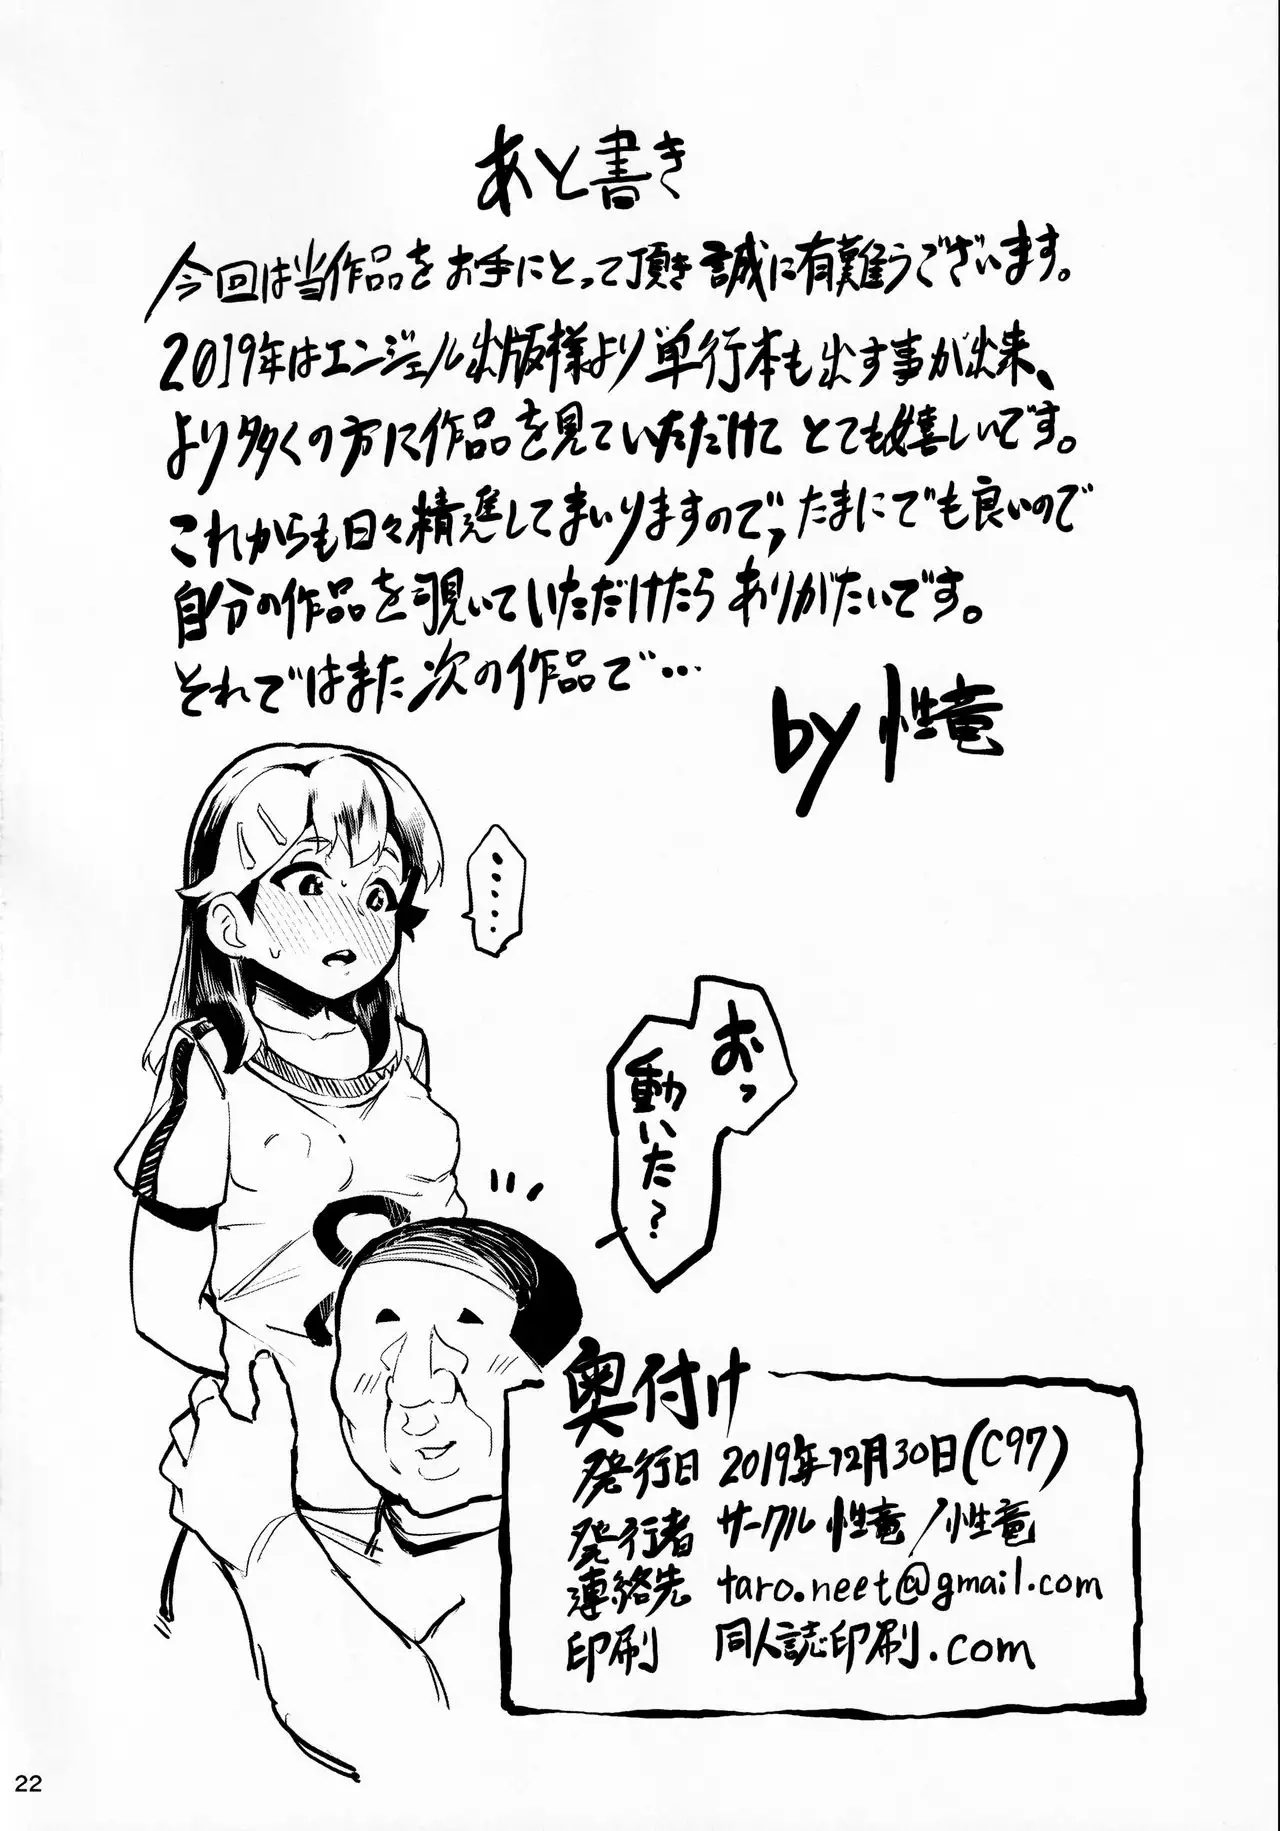 あと書き
今回は当作品をお手にとって頂き誠に有難うございます。
2019年はエンジェル出版様より単行本も出す事が出来、
より多くの方に作品を見ていただけてとても嬉しいです。
これからも日々精進してまいりますので、たまにでも良いので
自分の作品を覗いていただけたらありがたいです。
それではまた次の作品で…
by 性竜
……
おっ
動いた？
奥付け
発行日 2019年12月30日(C97)
発行者 サークル 性竜/性竜
連絡先 taro.neet@gmail.com
印刷 同人誌印刷.com
22